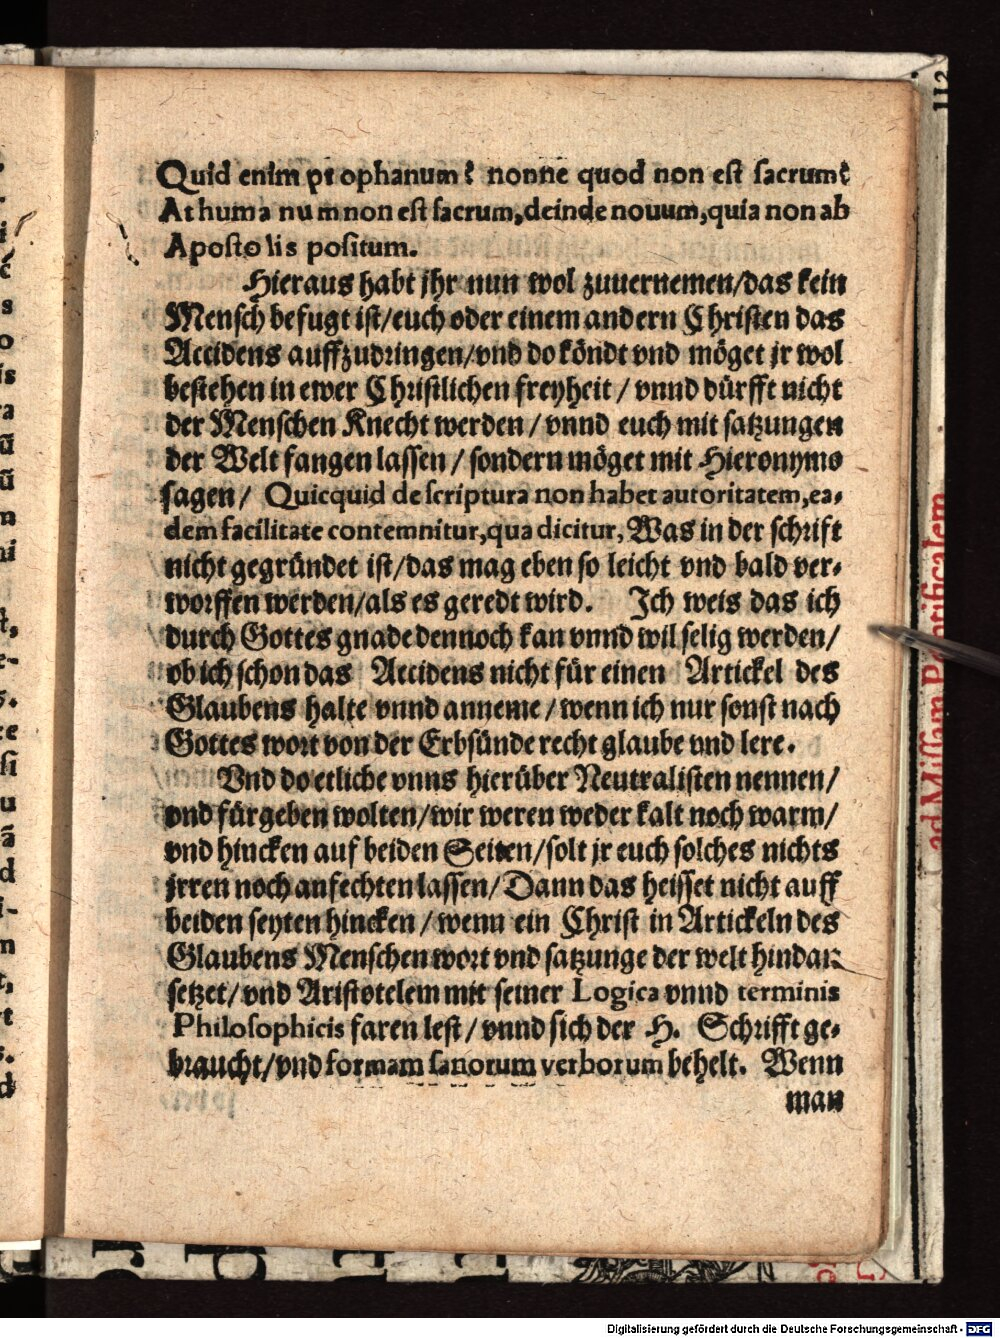 Quid enim prophanum? nonne quod non est sacrum?
At humanum non est sacrum, deinde nouum, quia non ab
Apostolis positum.
Hieraus habt jhr nun wol zuuernemen/das kein
Mensch befugt ist/euch oder einem andern Christen das
Accidens auffzudringen/vnd do köndt vnd möget jr wol
bestehen in ewer Christlichen freyheit / vnnd dürfft nicht
der Menschen Knecht werden / vnnd euch mit satzungen
der Welt fangen lassen / sondern möget mit Hieronymo
sagen / Quicquid de scriptura non habet autoritatem, ea-
dem facilitate contemnitur, qua dicitur, Was in der schrift
nicht gegründet ist/das mag eben so leicht vnd bald ver-
worffen werden/als es geredt wird. Ich weis das ich
durch Gottes gnade dennoch kan vnnd wil selig werden/
ob ich schon das Accidens nicht für einen Artickel des
Glaubens halte vnnd anneme / wenn ich nur sonst nach
Gottes wort von der Erbsünde recht glaube vnd lere.
Vnd do etliche vnns hierüber Neutralisten nennen/
vnd fürgeben wolten/wir weren weder kalt noch warm/
vnd hincken auf beiden Seiten/solt jr euch solches nichts
jrren noch anfechten lassen/Dann das heisset nicht auff
beiden seyten hincken / wenn ein Christ in Artickeln des
Glaubens Menschen wort vnd satzunge der welt hindan
setzet/vnd Aristotelem mit seiner Logica vnnd terminis
Philosophicis faren lest / vnnd sich der H. Schrifft ge-
braucht/vnd formam sanorum verborum behelt. Wenn
man
112
ad Missam Pontificalem
Digitalisierung gefördert durch die Deutsche Forschungsgemeinschaft - DFG